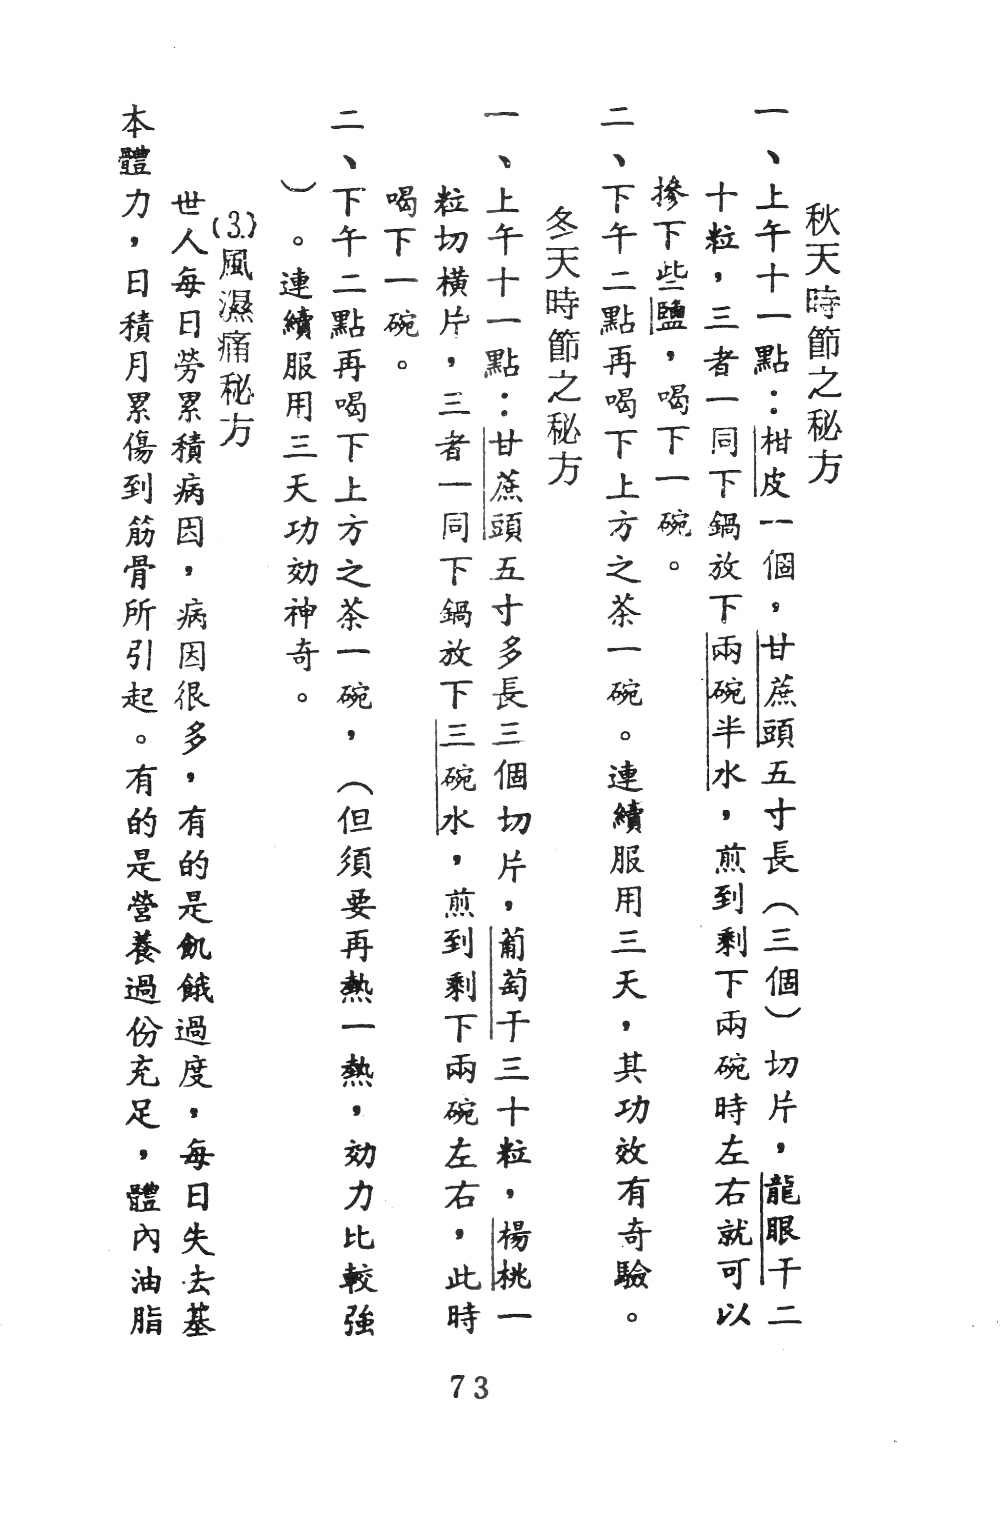 秋天時節之秘方
一、上午十一點：柑皮一個，甘蔗頭五寸長（三個）切片，龍眼干二
十粒，三者一同下鍋放下兩碗半水，煎到剩下兩碗時左右就可以
摻下些鹽，喝下一碗。
二、下午二點再喝下上方之茶一碗。連續服用三天，其功效有奇驗。
冬天時節之秘方
一、上午十一點：甘蔗頭五寸多長三個切片，葡萄干三十粒，楊桃一
粒切橫片，三者一同下鍋放下三碗水，煎到剩下兩碗左右，此時
喝下一碗。
二、下午二點再喝下上方之茶一碗，（但須要再熱一熱，効力比較強
）。連續服用三天功効神奇。
(3.)風濕痛秘方
世人每日勞累積病因，病因很多，有的是飢餓過度，每日失去基
本體力，日積月累傷到筋骨所引起。有的是營養過份充足，體內油脂
73